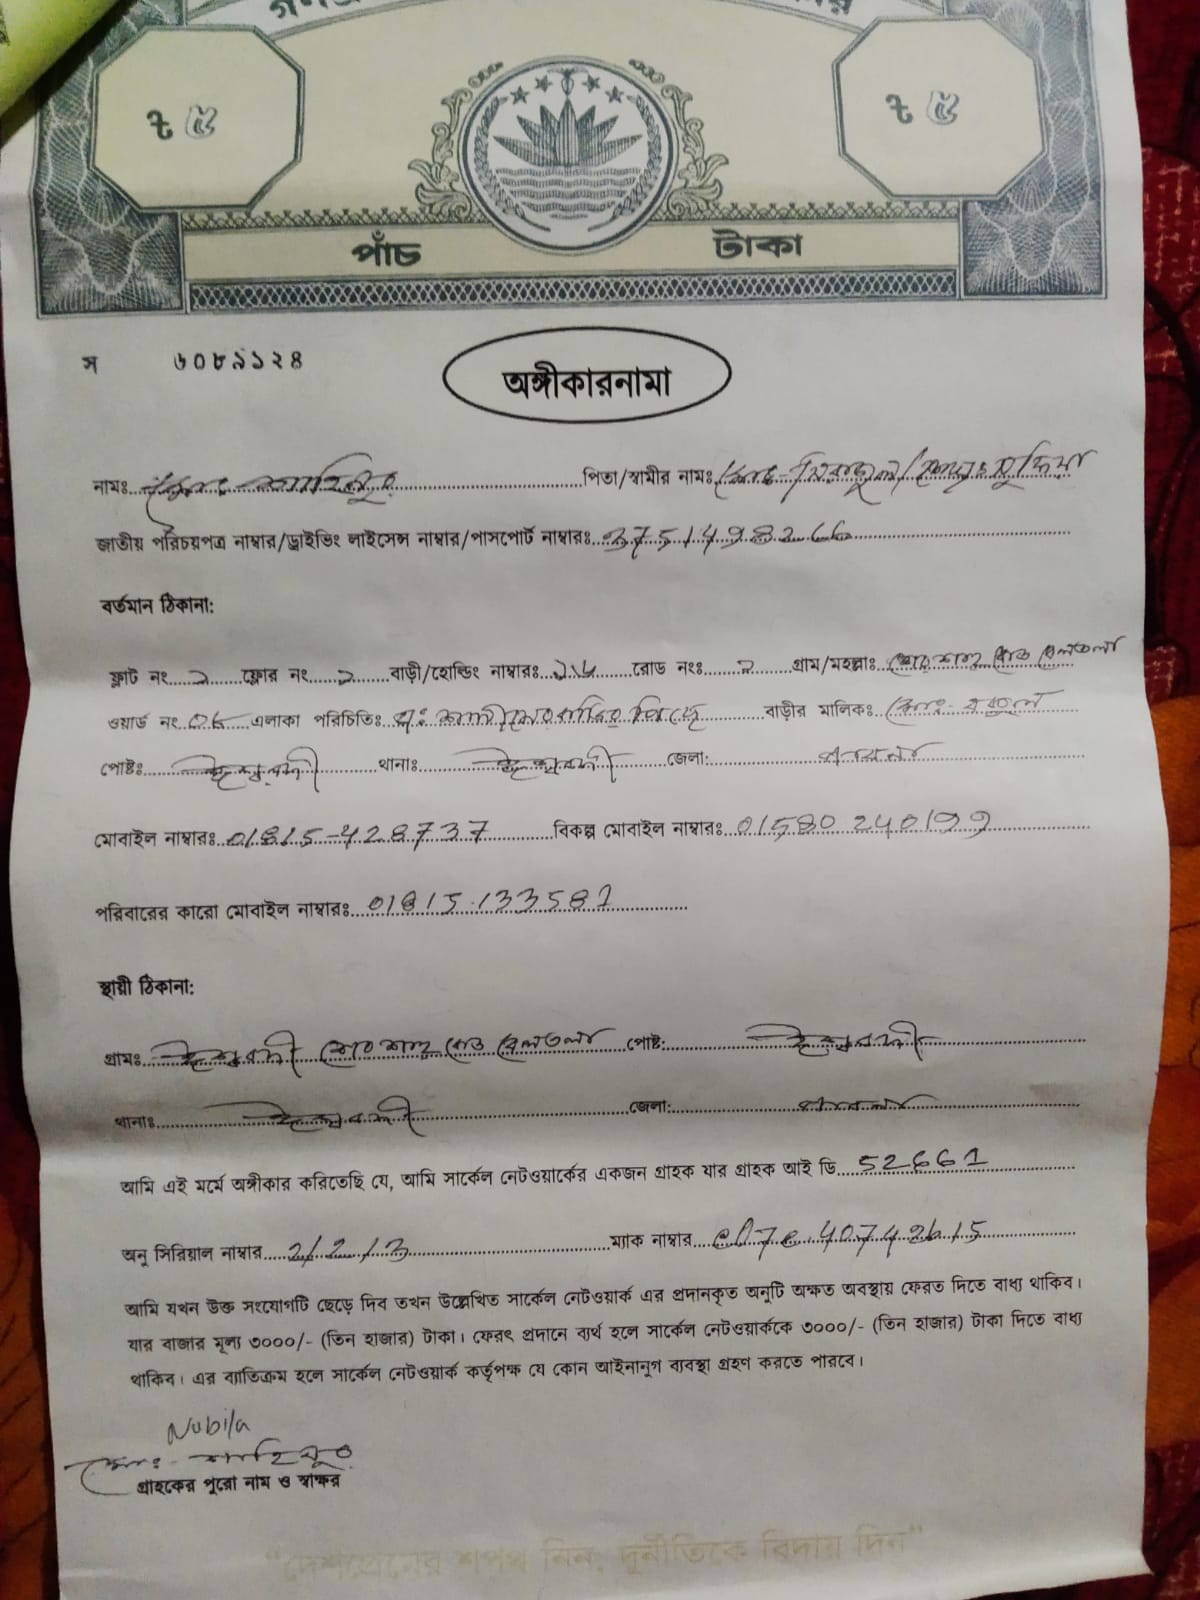 ৳ ৫
৳ ৫
পাঁচ টাকা
স ৬০৮৯১২৪
অঙ্গীকারনামা
নামঃ মোঃ শাহিনুর পিতা/স্বামীর নামঃ মোঃ সিরাজুল/মোছাঃ সুফিয়া
জাতীয় পরিচয়পত্র নাম্বার/ড্রাইভিং লাইসেন্স নাম্বার/পাসপোর্ট নাম্বারঃ 3751498266
বর্তমান ঠিকানা:
ফ্লাট নং ২ ফ্লোর নং ২ বাড়ী/হোল্ডিং নাম্বারঃ রোড নংঃ ২ গ্রাম/মহল্লাঃ শেরশাহ রোড বেলতলা
ওয়ার্ড নং এলাকা পরিচিতিঃ বাড়ীর মালিকঃ মোঃ বকুল
পোষ্টঃ ঈশ্বরদী থানাঃ ঈশ্বরদী জেলা: পাবনা
মোবাইল নাম্বারঃ 01815-428737 বিকল্প মোবাইল নাম্বারঃ 01580240199
পরিবারের কারো মোবাইল নাম্বারঃ 01815133581
স্থায়ী ঠিকানা:
গ্রামঃ ঈশ্বরদী শেরশাহ রোড বেলতলা পোষ্ট: ঈশ্বরদী
থানাঃ ঈশ্বরদী জেলা: পাবনা
আমি এই মর্মে অঙ্গীকার করিতেছি যে, আমি সার্কেল নেটওয়ার্কের একজন গ্রাহক যার গ্রাহক আই ডি 52661
অনু সিরিয়াল নাম্বার 2/2/3 ম্যাক নাম্বার
আমি যখন উক্ত সংযোগটি ছেড়ে দিব তখন উল্লেখিত সার্কেল নেটওয়ার্ক এর প্রদানকৃত অনুটি অক্ষত অবস্থায় ফেরত দিতে বাধ্য থাকিব।
যার বাজার মূল্য ৩০০০/- (তিন হাজার) টাকা। ফেরৎ প্রদানে ব্যর্থ হলে সার্কেল নেটওয়ার্ককে ৩০০০/- (তিন হাজার) টাকা দিতে বাধ্য
থাকিব। এর ব্যাতিক্রম হলে সার্কেল নেটওয়ার্ক কর্তৃপক্ষ যে কোন আইনানুগ ব্যবস্থা গ্রহণ করতে পারবে।
Nubila
মোঃ শাহিনুর
গ্রাহকের পুরো নাম ও স্বাক্ষর
"দেশপ্রেমের শপথ নিন, দুর্নীতিকে বিদায় দিন"